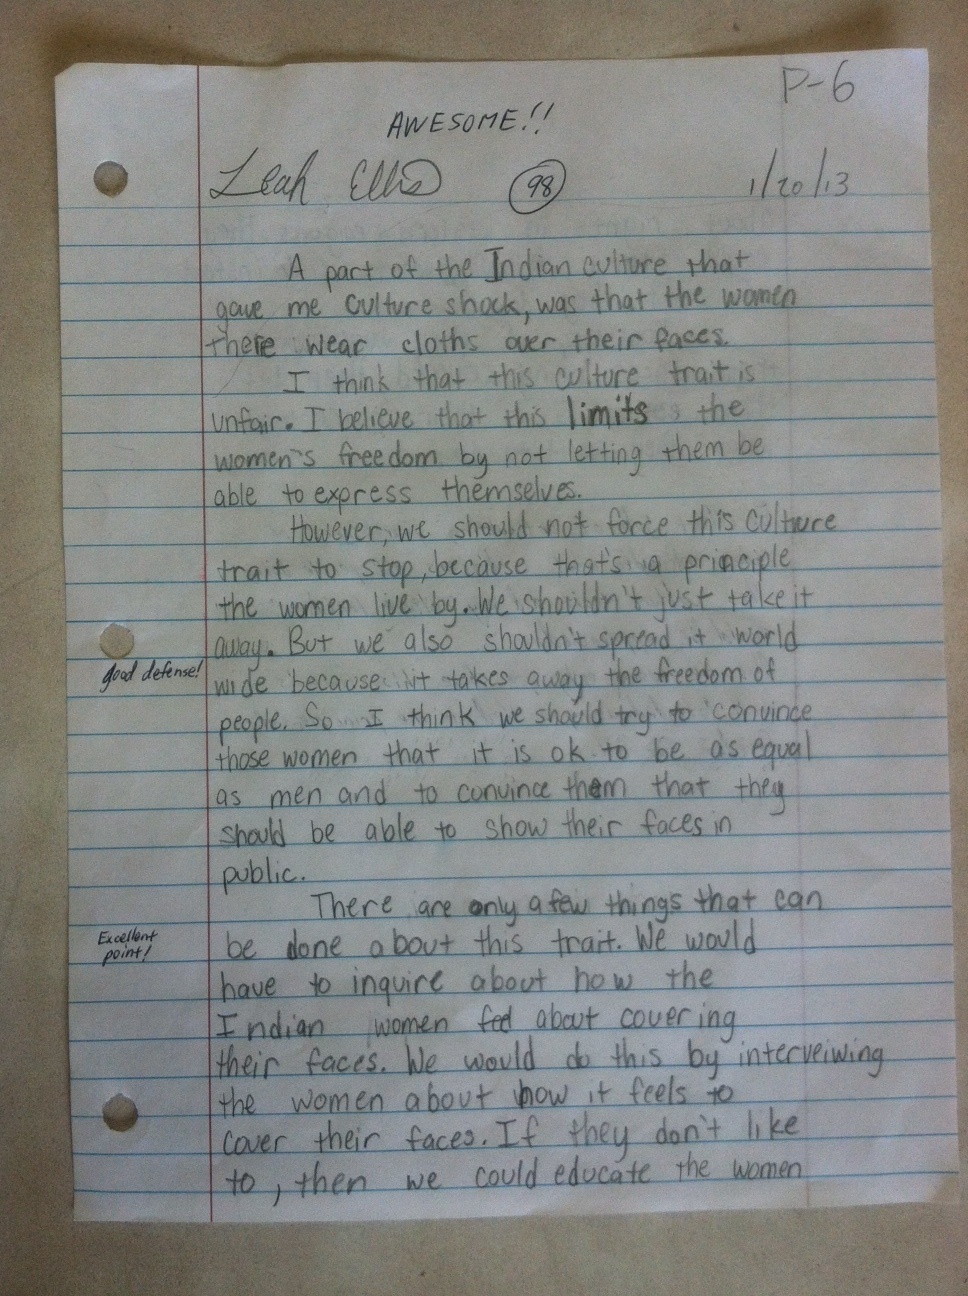 P-6
AWESOME!!
Leah Ellis 98 1/20/13
A part of the Indian culture that
gave me culture shock, was that the women
there wear cloths over their faces.
I think that this culture trait is
unfair. I believe that this limits the
women's freedom by not letting them be
able to express themselves.
However, we should not force this culture
trait to stop, because that's a principle
the women live by. We shouldn't just take it
away. But we also shouldn't spread it world
good defense!
wide because it takes away the freedom of
people. So I think we should try to convince
those women that it is ok to be as equal
as men and to convince them that they
should be able to show their faces in
public.
There are only a few things that can
Excellent
point!
be done about this trait. We would
have to inquire about how the
Indian women feel about covering
their faces. We would do this by interveiwing
the women about how it feels to
cover their faces. If they don't like
to, then we could educate the women